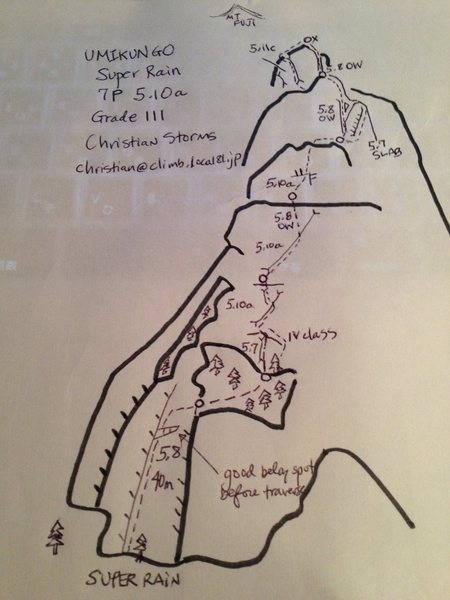 MT
FUJI
UMIKUNGO
Super Rain
7P 5.10a
Grade III
Christian Storms
christian@climb.local81.jp
5.11c
OX
5.8 OW
5.8
OW
5.7
SLAB
5.10a
F
5.8
OW
5.10a
5.10a
IV class
5.7
5.8
40m
good belay spot
before traverse
SUPER RAIN